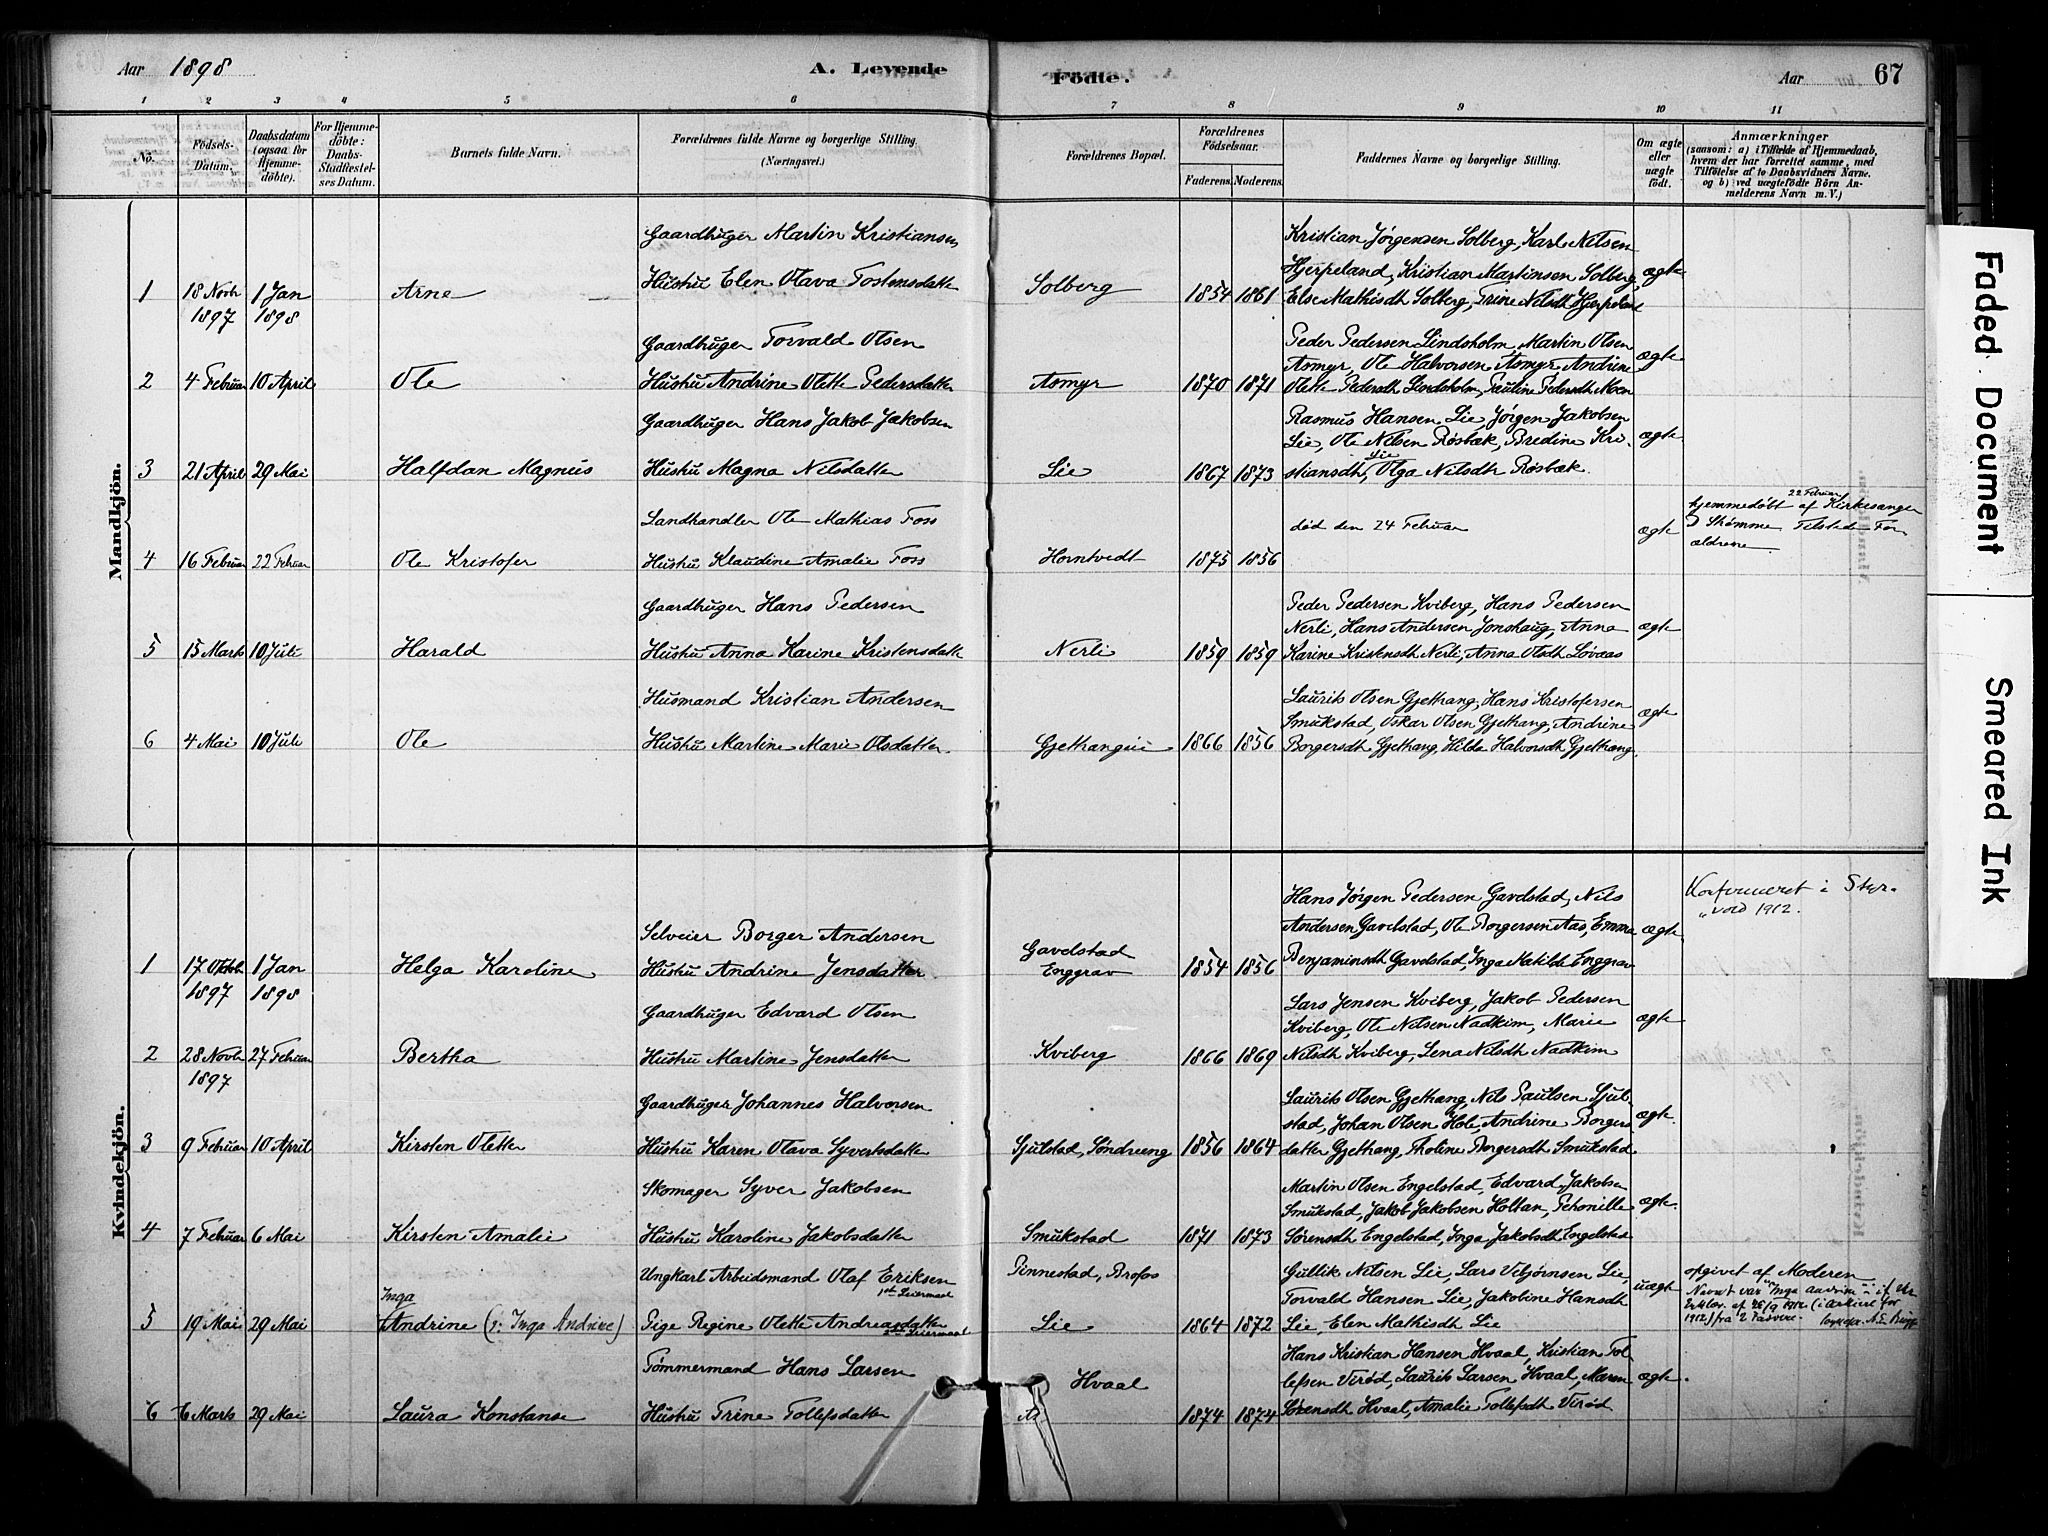 Aar 1898 A. Levende Fødte. Aar 67
1 2 3 4 5 6 7 8 9 10 11
No. Födsels-Datum. Daabsdatum (ogsaa for Hjemme-døbte). For Hjemme-döbte: Daabs-Stadfæstel-ses Datum. Barnets fulde Navn. Forældrenes fulde Navne og borgerlige Stilling. (Næringsvei.) Forældrenes Bopæl. Forældrenes Födselsaar. Faderens. Moderens. Faddernes Navne og borgerlige Stilling. Om ægte eller uægte födt. Anmærkninger (saasom: a) i Tilfælde af Hjemmedaab, hvem der har forrettet samme, med Tilföielse af to Daabsvidners Navne, og b) ved uægtefödte Börn An-melderens Navn m. V.)
Mandkjön.
Gaardbruger Martin Kristiansen
Kristian Jørgensen Solberg, Karl Nilsen
Hustru Elen Olava Tostensdatter
Hjerpeland, Kristian Martinsen Solberg, ægte
1 18 Novb 1 Jan Arne Solberg 1854 1861 Else Mathisdtr Solberg, Trine Nilsdtr Hjerpeland
1897 1898
Gaardbruger Torvald Olsen
Peder Pedersen Lindsholm, Martin Olsen
Asmyr, Ole Halvorsen Asmyr, Andrine ægte
2 4 Februar 10 April Ole Hustru Andrine Olette Pedersdatter Asmyr 1870 1871 Olette Pedersdtr Lindsholm, Pauline Pedersdtr Moen
Gaardbruger Hans Jakob Jakobsen
Rasmus Hansen Lie, Jørgen Jakobsen
Lie, Ole Nilsen Røsbæk, Bredine Kri- ægte
3 21 April 29 Mai Halfdan Magnus Hustru Magna Nilsdatter Lie 1867 1873 stiansdtr Lie, Olga Nilsdtr Røsbæk
Landhandler Ole Mathias Foss
død den 24 Februar ægte
hjemmedøbt 22 Februar af Kirkesanger
ældrene
4 16 Februar 22 Februar Ole Kristofer Hustru Klaudine Amalie Foss Horntvedt 1875 1856
Gaardbruger Hans Pedersen
Peder Pedersen Kviberg, Hans Pedersen
Nerli, Hans Andersen Jonshaug, Anna ægte
5 15 Marts 10 Juli Harald Hustru Anna Karine Kristensdatter Nerli 1859 1859 Karine Kristensdtr Nerli, Anna Olsdtr Løvaas
Husmand Kristian Andersen
Laurits Olsen Gjethang, Hans Kristofersen
Smukstad, Oskar Olsen Gjethang, Andrine ægte
6 4 Mai 10 Juli Ole Hustru Martine Marie Olsdatter Gjethangeie 1866 1856 Borgersdtr Gjethang, Hilda Halvorsdtr Gjethang
Kvindekjön.
Hans Jørgen Pedersen Gavelstad, Nils
Konfirmeret i Styr-
vold 1912.
Selveier Borger Andersen
Andersen Gavelstad, Ole Borgersen Aas, Emma ægte
1 17 Oktob 1 Jan Helga Karoline Hustru Andrine Jensdatter Gavelstad Enggrav 1854 1856 Benjaminsdtr Gavelstad, Inga Matilde Enggrav
1897 1898
Gaardbruger Edvard Olsen
Lars Jensen Kviberg, Jakob Pedersen
Kviberg, Ole Nilsen Nadkim, Marie ægte
2 28 Novb 27 Februar Bertha Hustru Martine Jensdatter Kviberg 1866 1869 Nilsdtr Kviberg, Lena Nilsdtr Nadkim
1897
Gaardbruger Johannes Halvorsen
Laurits Olsen Gjethang, Nils Paulsen Sjul-
stad, Johan Olsen Hole, Andrine Borgers ægte
3 9 Februar 10 April Kirsten Olette Hustru Karen Olava Syvertsdatter Sjulstad, Söndreeng 1856 1864 datter Gjethang, Tholine Borgersdtr Smukstad
Skomager Syver Jakobsen
Martin Olsen Engelstad, Edvard Jakobsen
Smukstad, Jakob Jakobsen Holtan, Petronille ægte
4 7 Februar 6 Mai Kirsten Amalie Hustru Karoline Jakobsdatter Smukstad 1871 1873 Sørensdtr Engelstad, Inga Jakobsdtr Engelstad
Ungkarl Arbeidsmand Olaf Eriksen 1ste Leiermaal Pinnestad, Brofos
Gullik Nilsen Lie, Lars Vebjørnsen Lie, uægte opgivet af Moderen
Inga Torvald Hansen Lie, Jakobine Hansdtr
5 19 Mai 29 Mai Andrine (ɔ: Inga Andrine) Pige Regine Olette Andreasdatter Lie 1864 1872 Lie, Elen Mathisdtr Lie
Tømmermand Hans Larsen
Hans Kristian Hansen Hvaal, Kristian Tol-
Hvaal lefsen Virød, Laurits Larsen Hvaal, Maren ægte
6 6 Marts 29 Mai Laura Konstanse Hustru Trine Tollefsdatter 1874 1874 Sørensdtr Hvaal, Amalie Tollefsdtr Virød
Faded Document
Smeared Ink